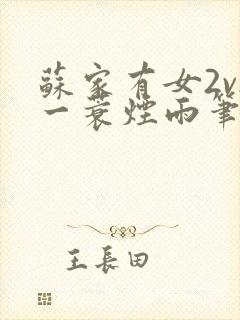 蘇家有女2v
一蓑煙雨筆
王長田